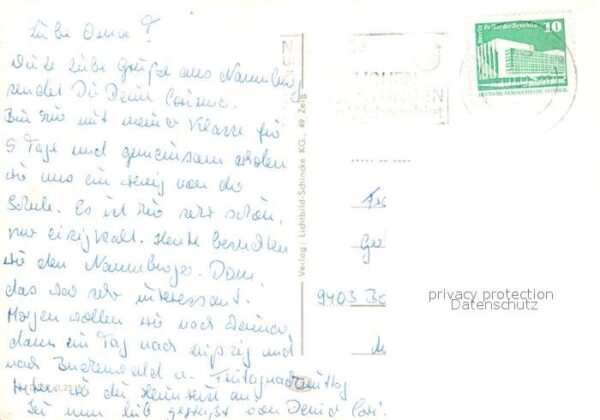 Liebe Oma!
Viele liebe Grüße aus Naumburg
sendet Dir Deine
Bin hier mit meiner Klasse für
5 Tage und gemeinsam erholen
wir uns ein wenig von der
Schule. Es ist hier sehr schön,
nur eisigkalt. Heute besuchten
wir den Naumburger Dom,
das war sehr interessant.
Morgen wollen wir nach
dann ein Tag nach Leipzig und
nach Buchenwald u. Freitagnachmittag
treten wir die Heimreise an.
Sei nun lieb gegrüßt von Deiner
Verlag: Lichtbild-Schincke KG., 49 Zeitz
Berlin Palast der Republik
10
DEUTSCHE DEMOKRATISCHE REPUBLIK
9403
privacy protection
Datenschutz